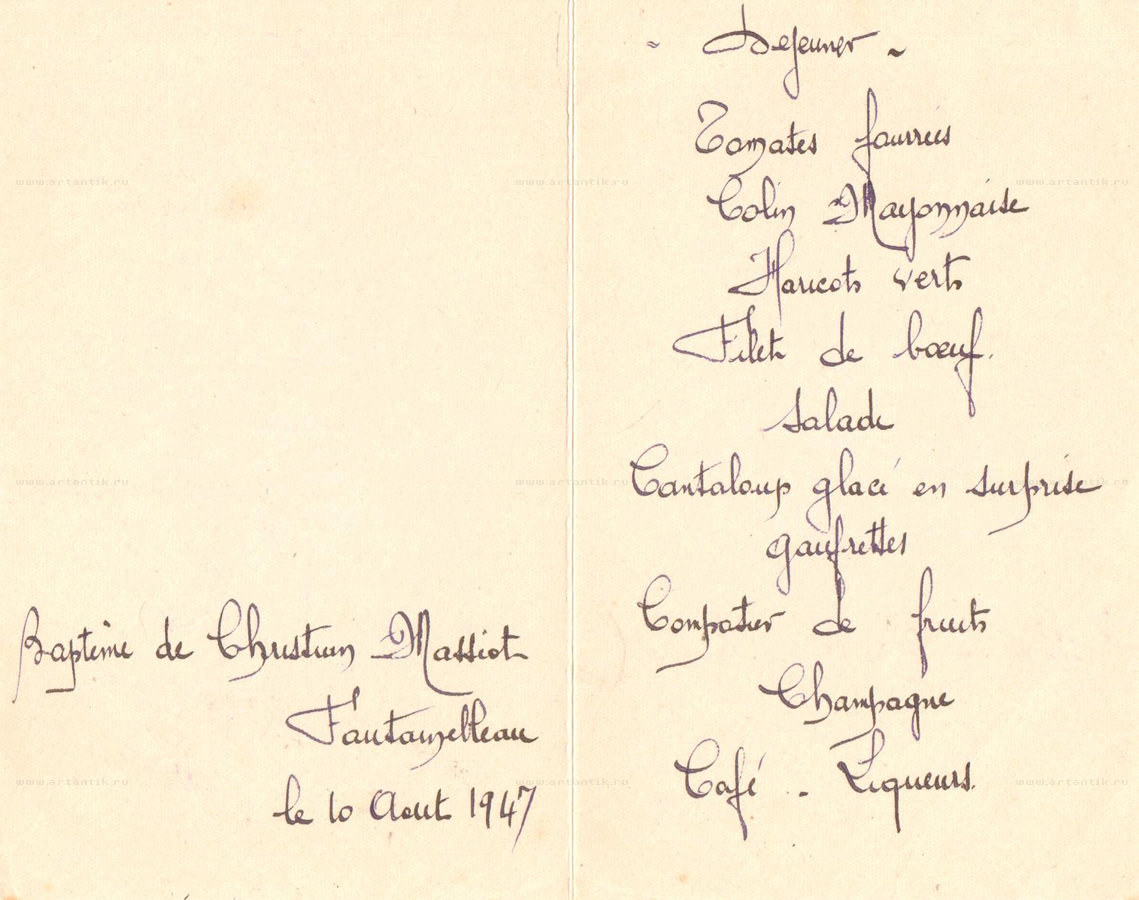 www.artantik.ru
www.artantik.ru
Baptême de Christian Massiot
www.artantik.ru
le 10 Aout 1947
- Dejeuner -
Tomates fourrées
www.artantik.ru www.artantik.ru
Colin Mayonnaise
Haricots verts
Filet de bœuf.
Salade
Cantaloup glacé en surprise
www.artantik.ru www.artantik.ru
gaufrettes
Compotier de fruits
Champagne
Café - Liqueurs.
www.artantik.ru www.artantik.ru